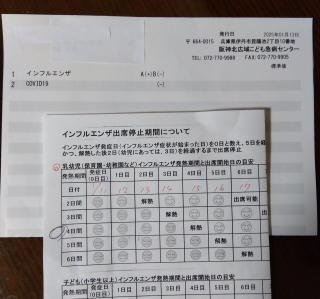 発行日 2025年01月13日
〒 664-0015 兵庫県伊丹市昆陽池2丁目10番地
阪神北広域こども急病センター
TEL: 072-770-9988 FAX: 072-770-9905
標準値
1 インフルエンザ A(+)B(-)
2 COVID19 (-)
インフルエンザ出席停止期間について
インフルエンザ発症日(インフルエンザ症状が始まった日)を0日と数え、5日を経
かつ、解熱した後2日(幼児にあっては、3日)を経過するまで出席停止
乳幼児(保育園・幼稚園など)インフルエンザ発熱期間と出席開始日の目安
発熱期間 発症日(0日目) 1日目 2日目 3日目 4日目 5日目 6日目 7日
日付 1/11 12 13 14 15 16 17
2日間 解熱 出席可能
3日間 解熱
4日間 解熱
5日間 解熱
6日間 解熱
子ども(小学生以上)インフルエンザ発熱期間と出席開始日の目安
発熱期間 発症日(0日目) 1日目 2日目 3日目 4日目 5日目 6日目